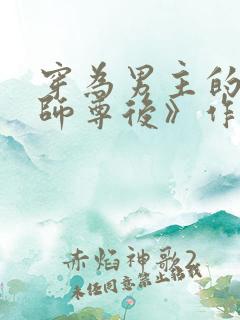 穿為男主的
師尊後》作
赤焰神歌2
未任同意禁止轉載